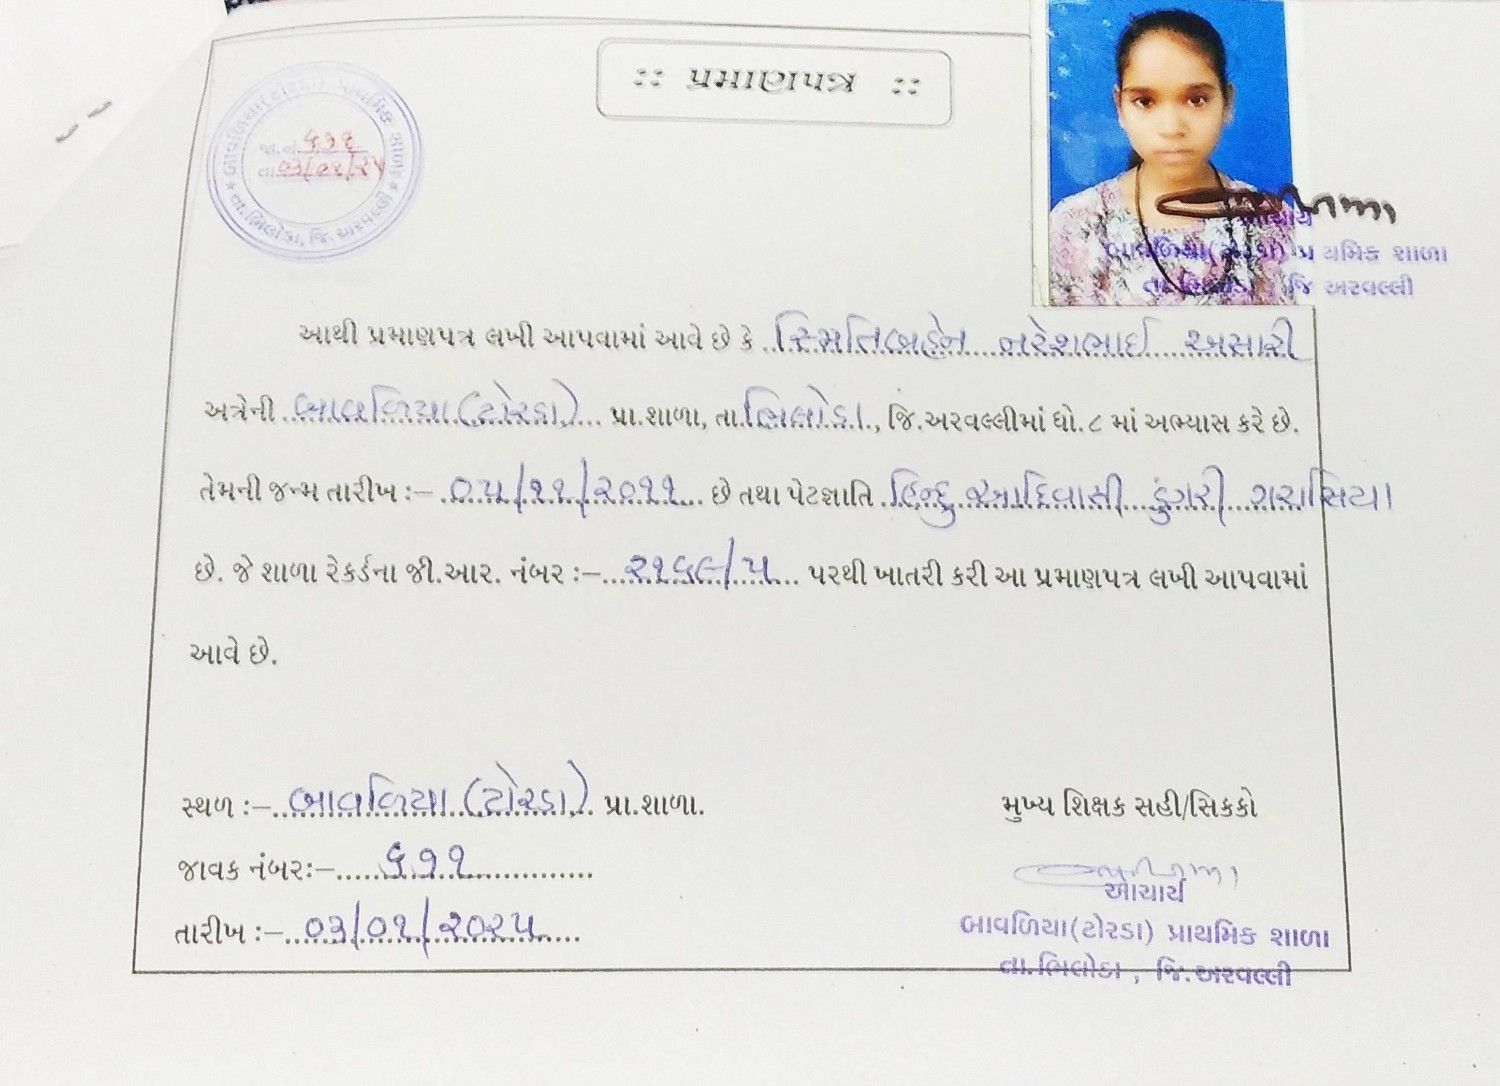 :: પ્રમાણપત્ર ::
બાવળિયા(ટોરડા) પ્રાથમિક શાળા
જા.નં. ૬૭૧
તા. ૦૩/૦૧/૨૫
તા.ભિલોડા, જિ.અરવલ્લી
આચાર્ય
બાવળિયા(ટોરડા) પ્રાથમિક શાળા
તા.ભિલોડા, જિ અરવલ્લી
આથી પ્રમાણપત્ર લખી આપવામાં આવે છે કે સ્મિતિબહેન નરેશભાઈ અસારી
અત્રેની બાવળિયા (ટોરડા) પ્રા.શાળા, તા.ભિલોડા, જિ.અરવલ્લીમાં ધો.૮ માં અભ્યાસ કરે છે.
તેમની જન્મ તારીખ :– ૦૫/૧૧/૨૦૧૧ છે તથા પેટજ્ઞાતિ હિન્દુ આદિવાસી ડુંગરી ગરાસિયા
છે. જે શાળા રેકર્ડના જી.આર. નંબર :– ૨૧૬૯/૫ પરથી ખાતરી કરી આ પ્રમાણપત્ર લખી આપવામાં
આવે છે.
સ્થળ :– બાવળિયા (ટોરડા) પ્રા.શાળા.
જાવક નંબર:– ૬૭૧
તારીખ :– ૦૩/૦૧/૨૦૨૫
મુખ્ય શિક્ષક સહી/સિકકો
આચાર્ય
બાવળિયા(ટોરડા) પ્રાથમિક શાળા
તા.ભિલોડા, જિ.અરવલ્લી